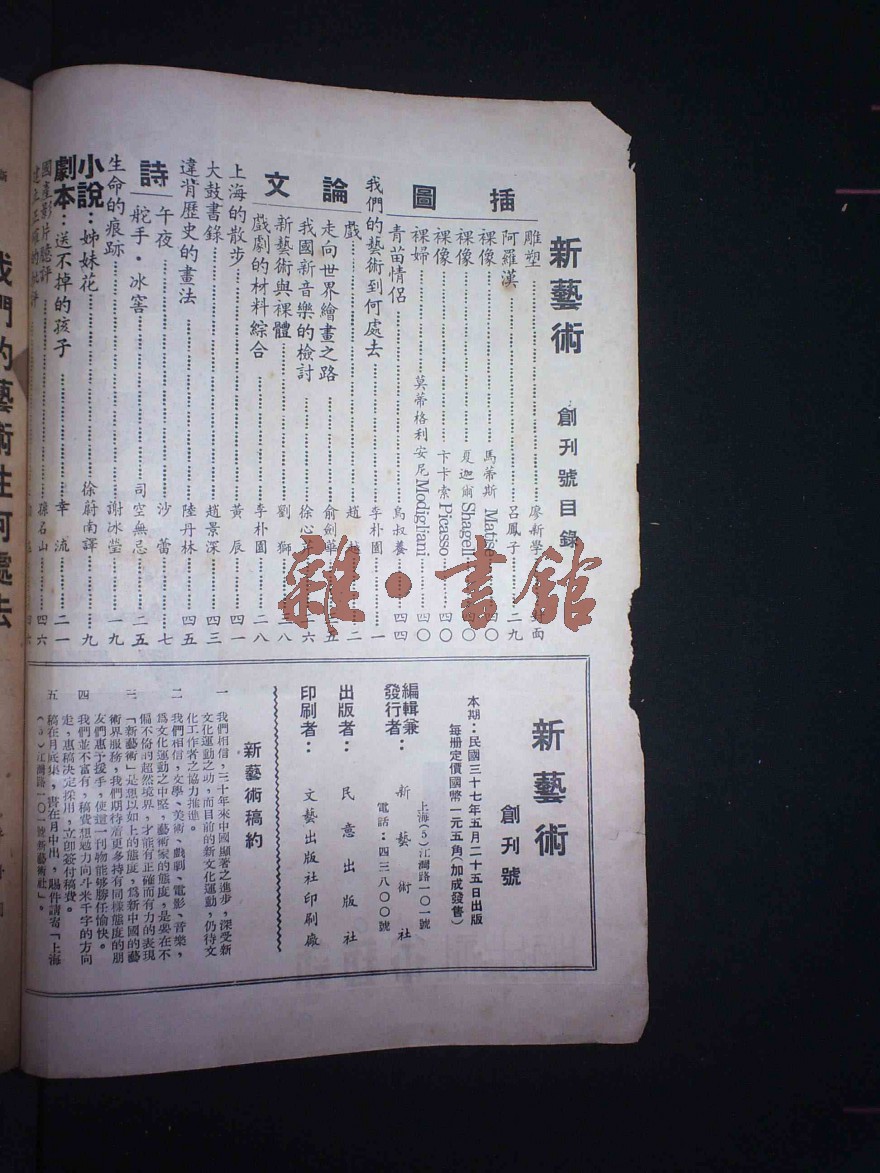 新藝術 創刊號目錄
插圖
雕塑 廖新學 封面
阿羅漢 呂鳳子 二九
裸像 馬蒂斯 四〇
裸像 夏迦爾 Shagall 四〇
裸像 卞卡索 Picasso 四〇
裸婦 莫蒂格利安尼 Modigliani 四〇
青苗情侶 烏叔養 四四
論文
我們的藝術到何處去 李朴園 一
戲 趙越 二
走向世界繪畫之路 俞劍華 五
我國新音樂的檢討 徐心 六
新藝術與裸體 劉獅 八
戲劇的材料綜合 李朴園 二八
上海的散步 黃辰 四一
大鼓書錄 趙景深 四三
違背歷史的畫法 陸丹林 四五
詩
午夜 沙蕾 七
舵手·冰窖 司空無忌 二五
生命的痕跡 謝冰瑩 一九
小說:姊妹花 徐蔚南譯 九
劇本:送不掉的孩子 幸流 二一
國產影片聽評 孫名山 四六
新藝術
創刊號
本期:民國三十七年五月二十五日出版
每册定價國幣一元五角(加成發售)
編輯兼發行者:新藝術社
上海(5)江灣路一〇一號
電話:四三八〇〇號
出版者:民意出版社
印刷者:文藝出版社印刷廠
新藝術稿約
一 我們相信,三十年來中國顯著之進步,深受新
文化運動之功,而目前的新文化運動,仍待文
化工作者之協力推進。
二 我們相信,文學、美術、戲劇、電影、音樂,
爲文化運動之中堅,藝術家的態度,是要在不
偏不倚的超然境界,才能有正確而有力的表現
三 「新藝術」是想以如上的態度,爲新中國的藝
術界服務,我們期待着更多持有同樣態度的朋
友們惠予援手,使這一刊物能够勝任愉快。
四 我們並不富有,稿費想勉力向斗米千字的方向
走,惠稿决定採用,立即簽付稿費。
五 稿在月底集,書在月中出,賜件請寄「上海
(5)江灣路一〇一號新藝術社」。
我們的藝術往何處去
雜·書館